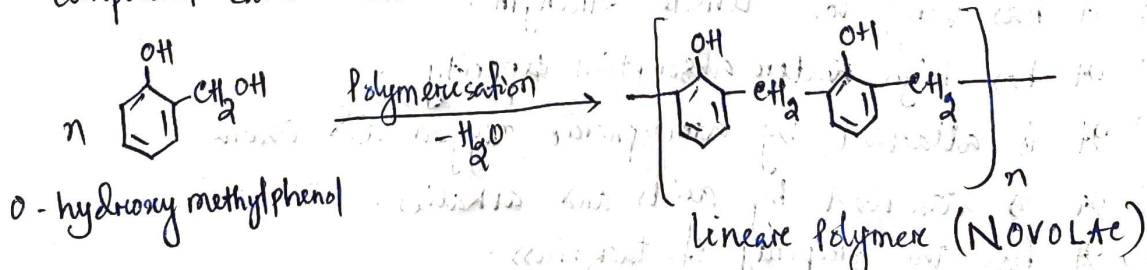 OH OH OH
n CH2OH Polymerisation CH2 CH2
-H2O n
O-hydroxy methylphenol
Lineare Polymere (NOVOLAC)